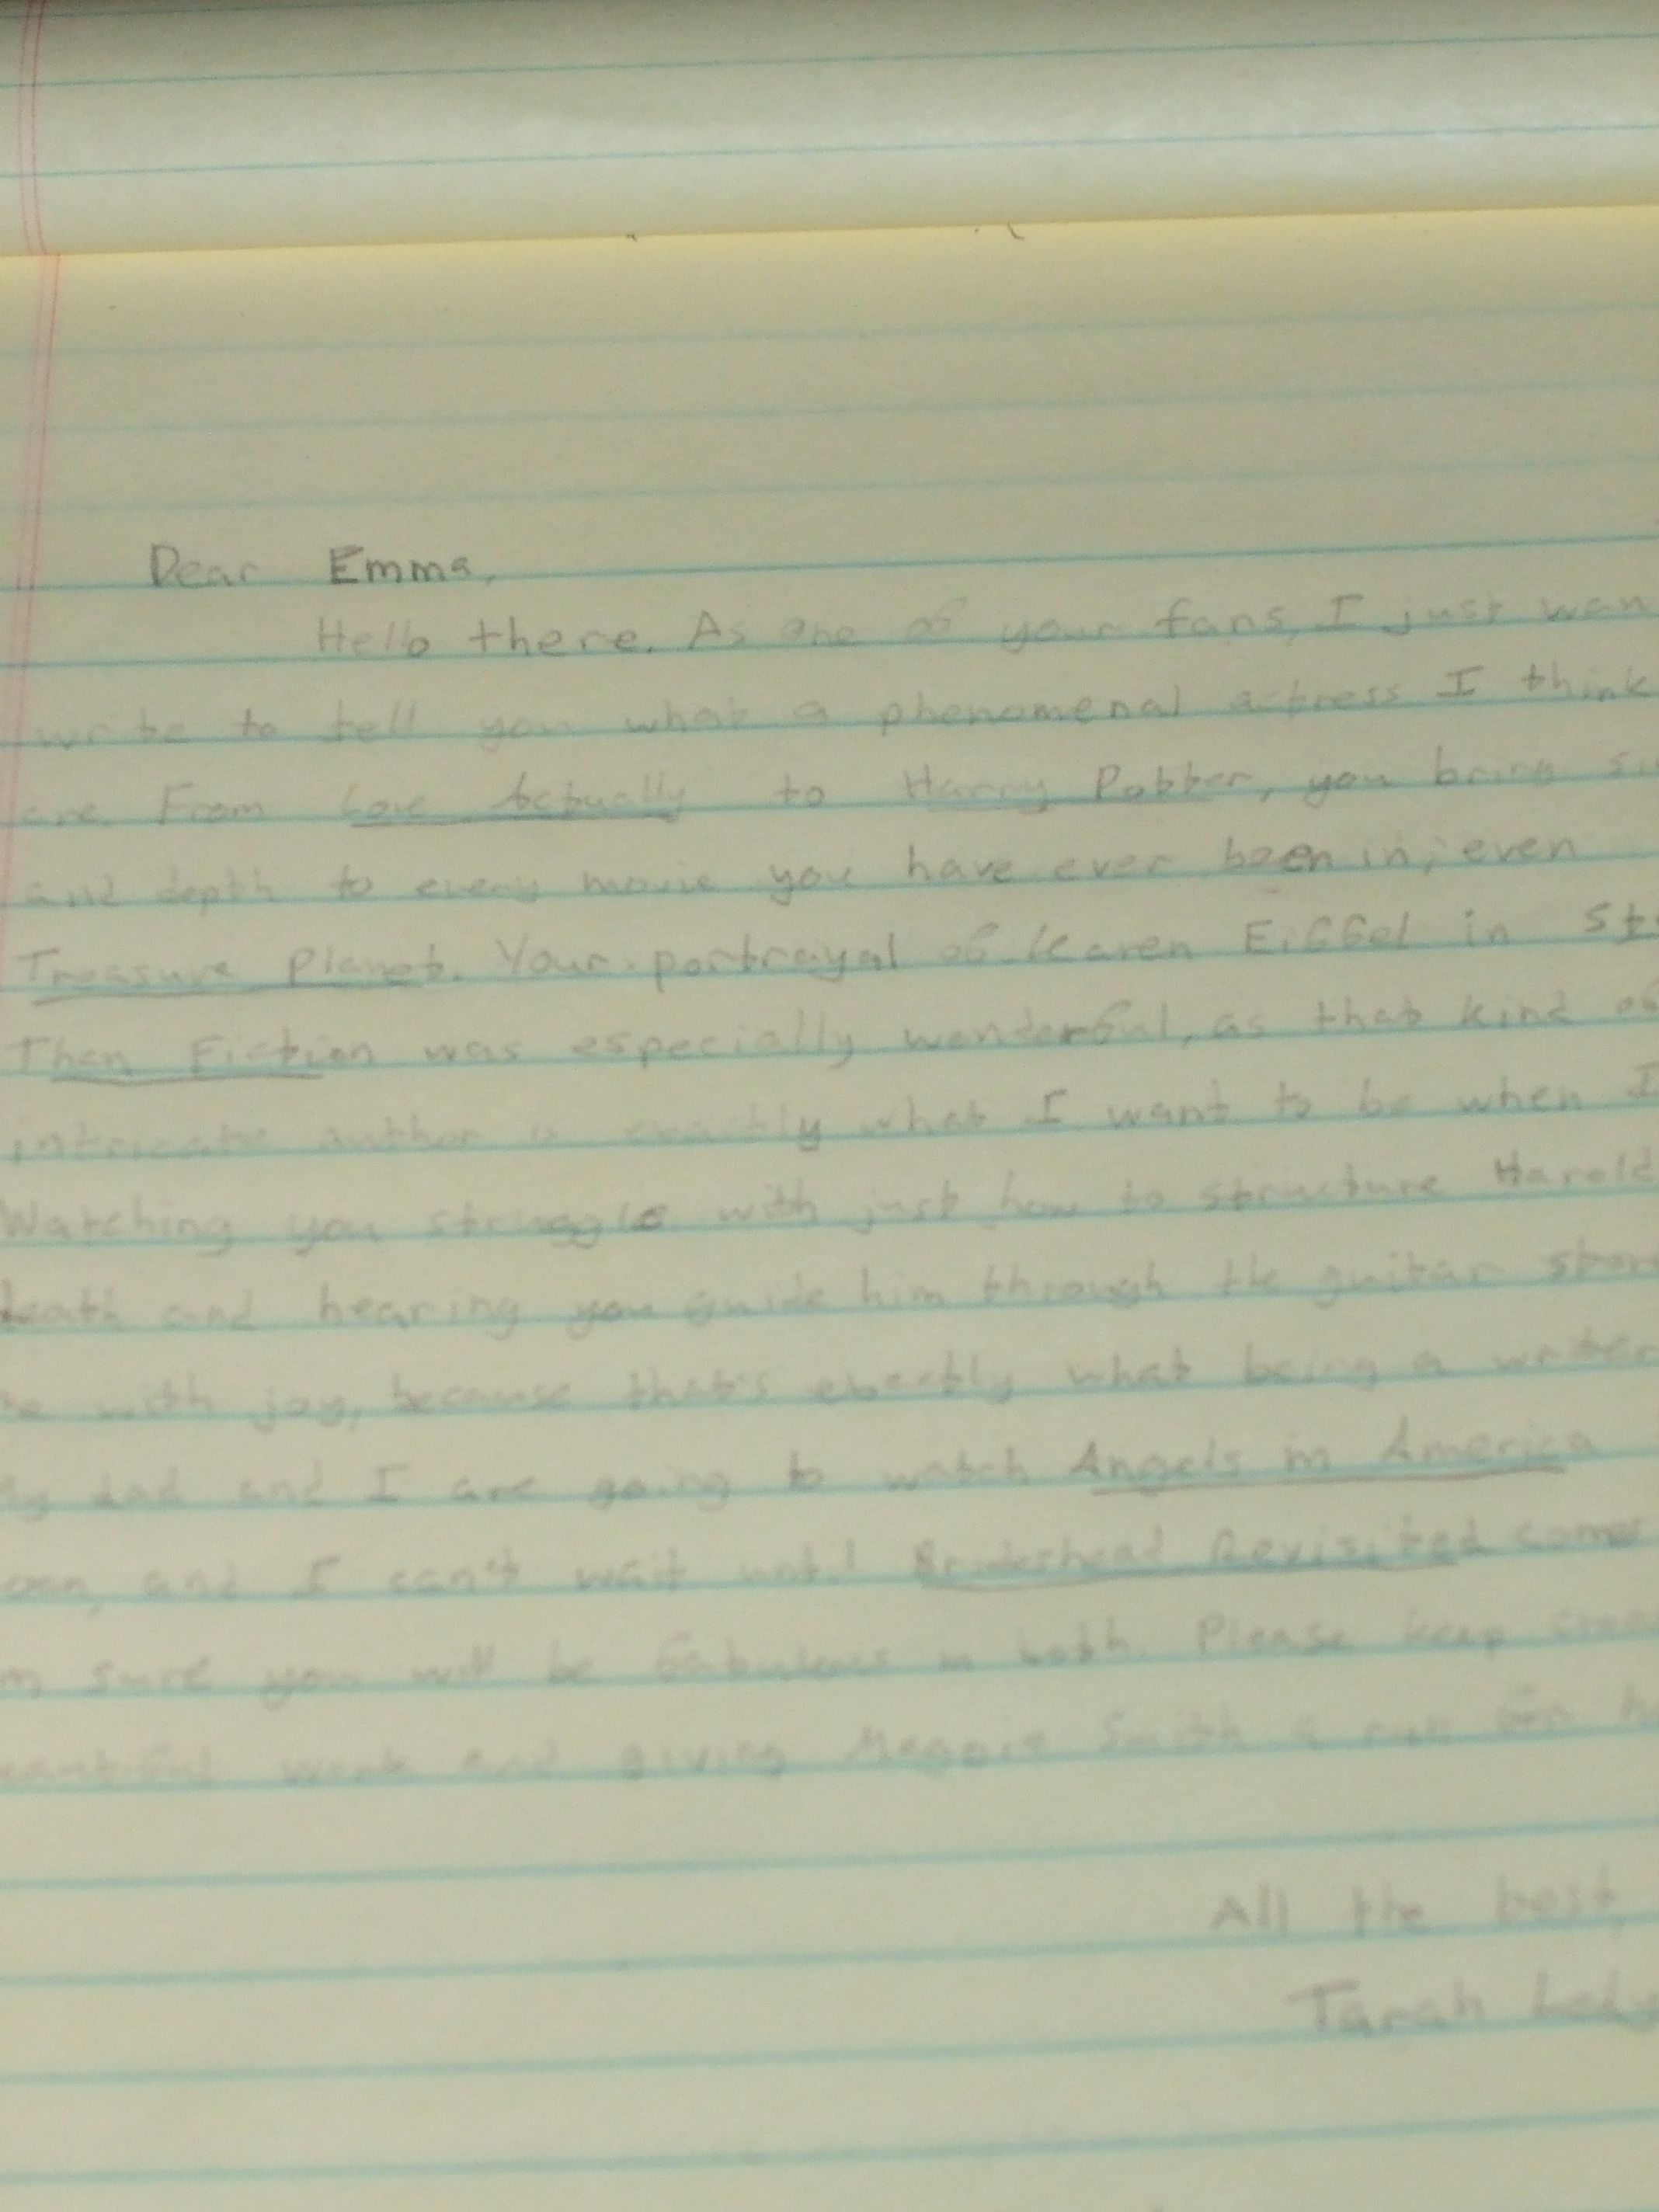 Dear Emma,
Hello there. As one of your fans, I just wan
write to tell you what a phenomenal actress I think
are. From Love Actually to Harry Potter, you bring
and depth to every movie you have ever been in, even
Treasure Planet. Your portrayal of Karen Eiffel in St
Than Fiction was especially wonderful, as that kind of
intricate author is exactly what I want to be when I
Watching you struggle with just how to structure Harold
death and hearing you guide him through the guitar stor
with joy, because that's exactly what being a writer
dad and I are going to watch Angels in America
and I can't wait until Brideshead Revisited comes
sure you will be fabulous in both. Please keep
work and giving Maggie Smith a run for
All the best,
Tarah